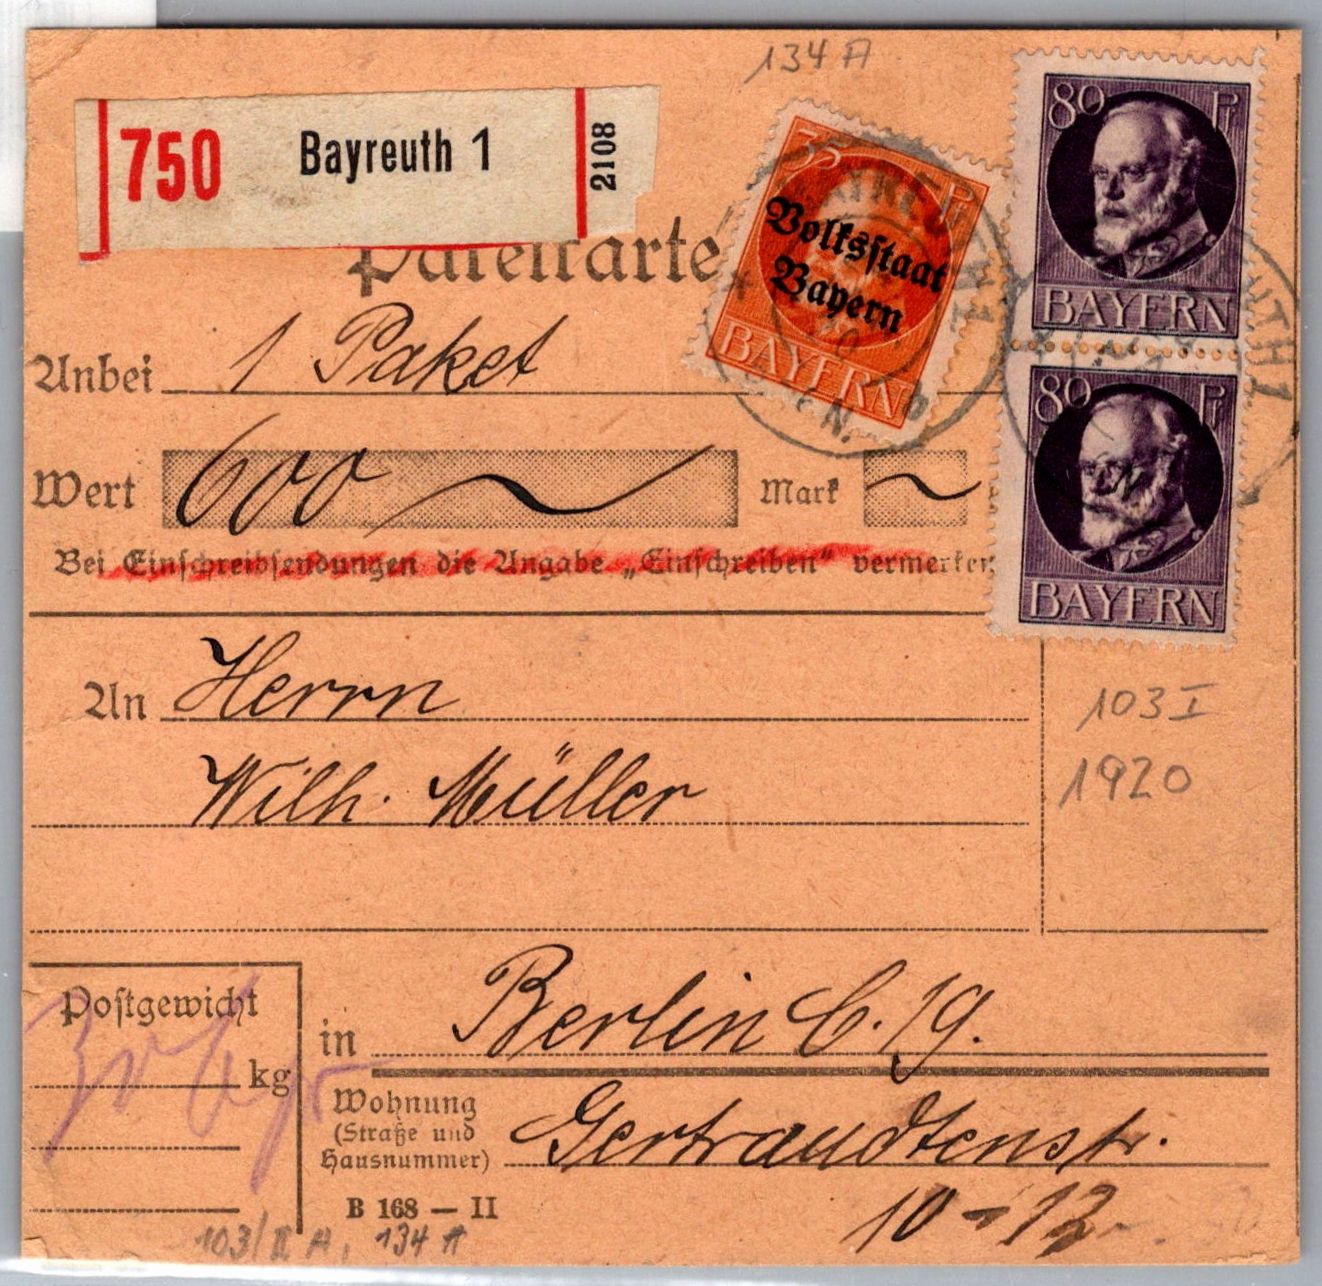 134 A
750 Bayreuth 1 2108
Paketkarte
35 Pf
Volksstaat
Bayern
BAYERN
80 Pf
BAYERN
80 Pf
BAYERN
BAYREUTH 1
Anbei 1 Paket
Wert 600 Mark
Bei Einschreibsendungen die Angabe „Einschreiben“ vermerken
An Herrn
Wilh. Müller
103 I
1920
Postgewicht
kg
in Berlin C. 19.
Wohnung
(Straße und
Hausnummer) Gertraudtenstr.
10-12
B 168 — II
103/II A, 134 A